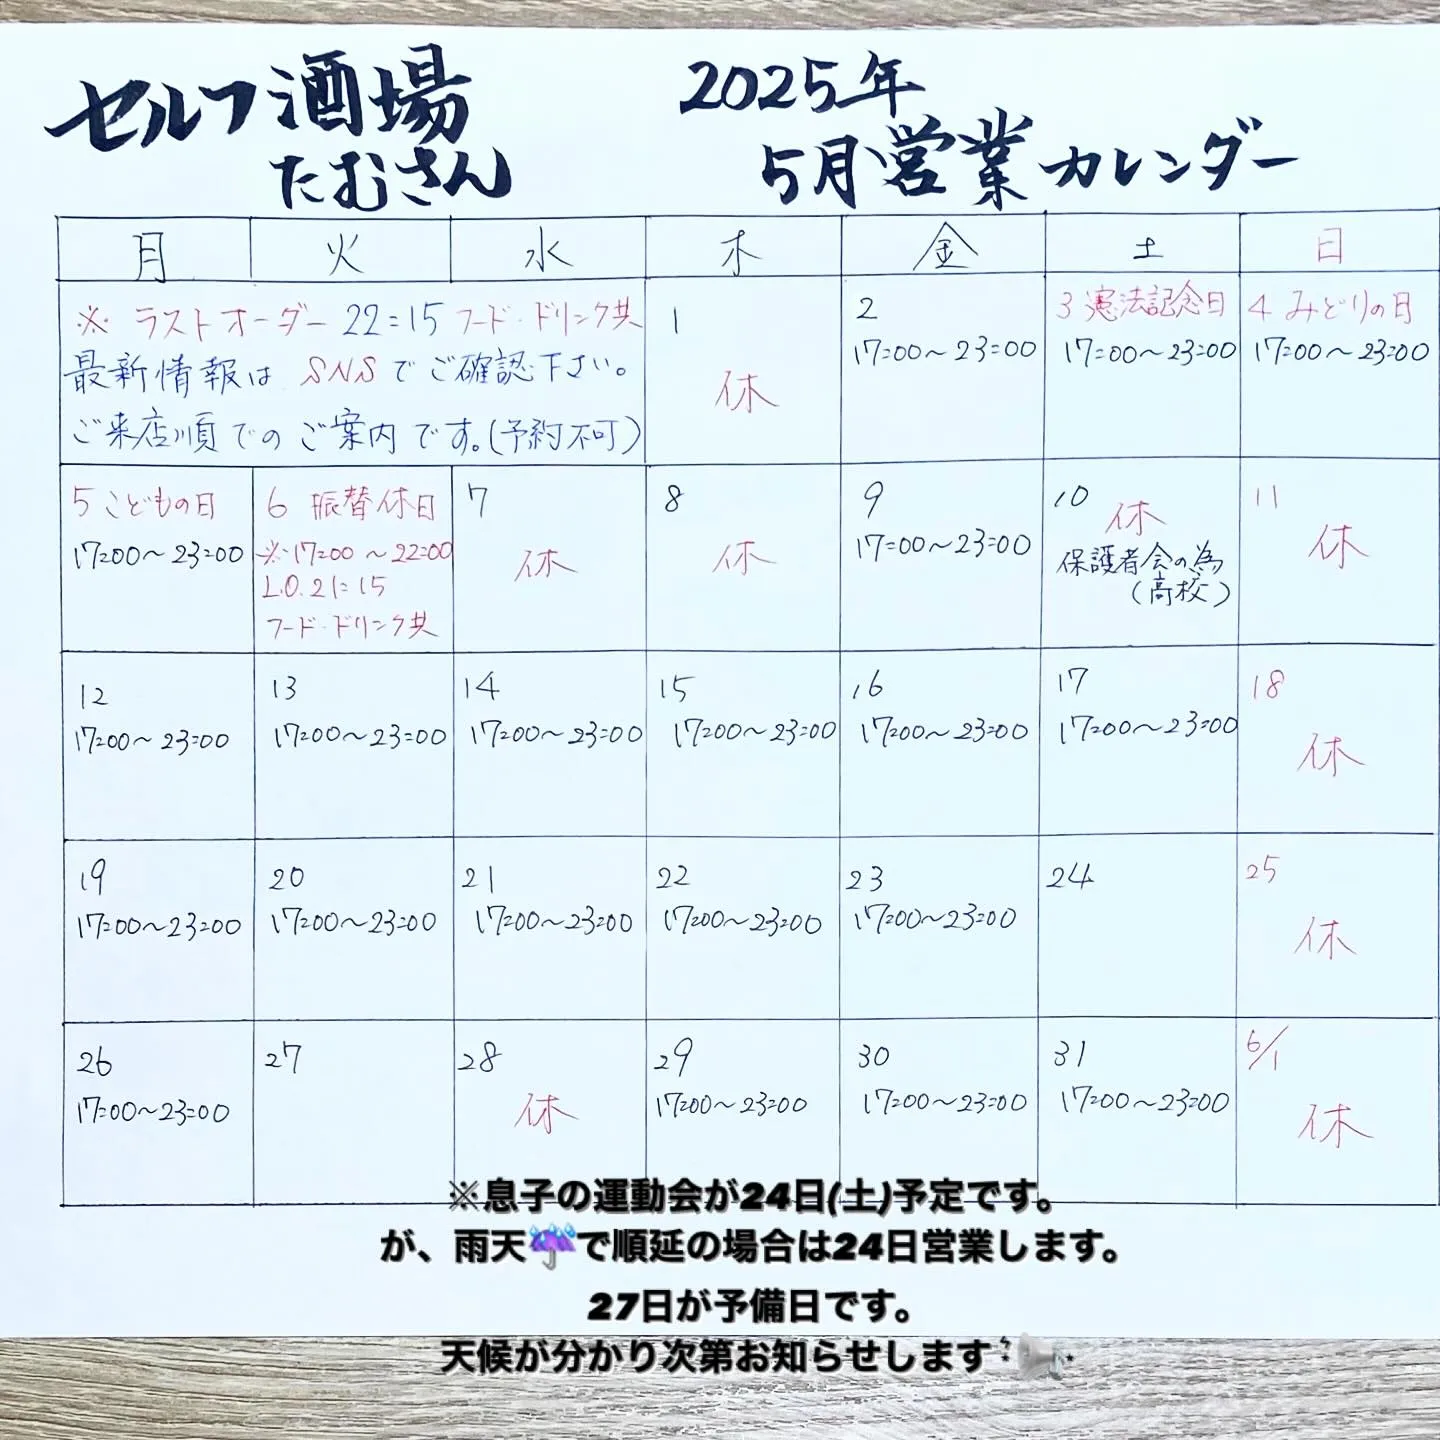 セルフ酒場
たむさん
2025年
5月営業カレンダー
月 火 水 木 金 土 日
※ ラストオーダー 22:15 フード・ドリンク共
最新情報は SNSでご確認下さい。
ご来店順でのご案内です。(予約不可)
1
休
2
17:00～23:00
3 憲法記念日
17:00～23:00
4 みどりの日
17:00～23:00
5 こどもの日
17:00～23:00
6 振替休日
※17:00～22:00
L.O.21:15
フード・ドリンク共
7
休
8
休
9
17:00～23:00
10
休
保護者会の為
(高校)
11
休
12
17:00～23:00
13
17:00～23:00
14
17:00～23:00
15
17:00～23:00
16
17:00～23:00
17
17:00～23:00
18
休
19
17:00～23:00
20
17:00～23:00
21
17:00～23:00
22
17:00～23:00
23
17:00～23:00
24
25
休
26
17:00～23:00
27
28
休
29
17:00～23:00
30
17:00～23:00
31
17:00～23:00
6/1
休
※息子の運動会が24日(土)予定です。
が、雨天☔で順延の場合は24日営業します。
27日が予備日です。
天候が分かり次第お知らせします